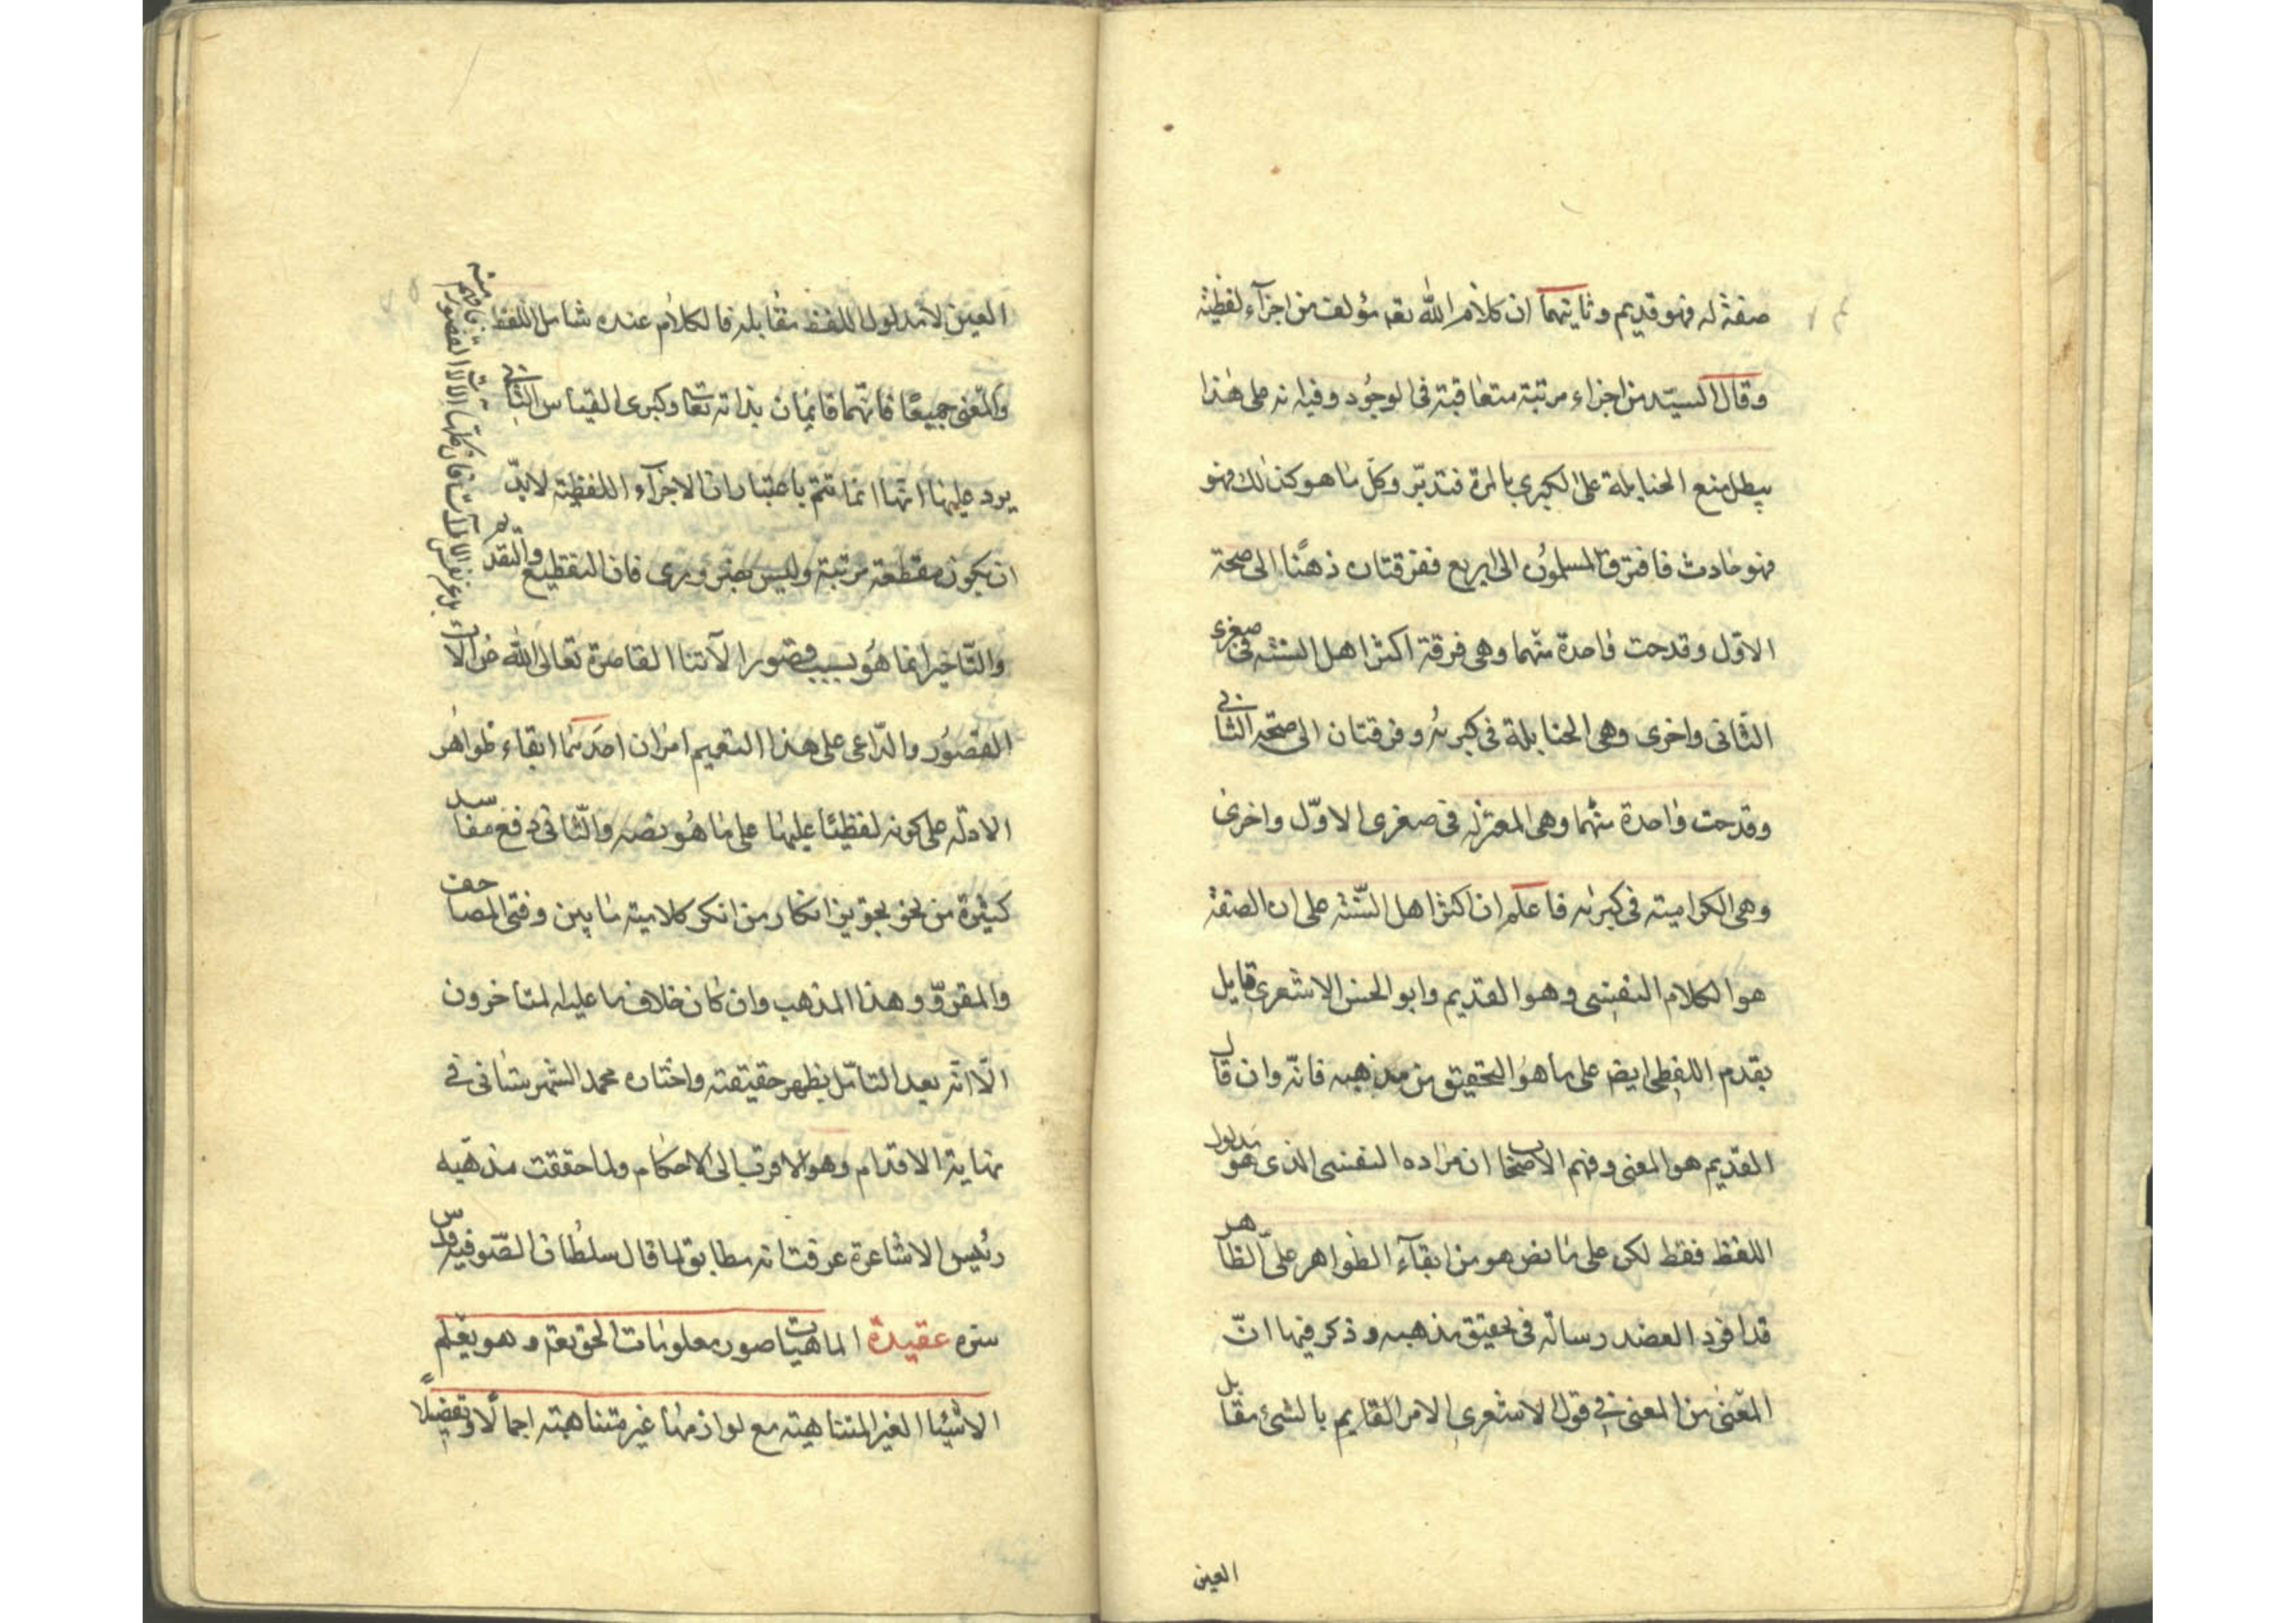 صفة له فهو قديم وثانيتهما ان كلام الله تعه مؤلف من اجزآء لفظية
وقال السيد من اجزاء مرتبة متعاقبة فى الوجود وفيه انه على هذا
يبطل منع الحنابلة على الكبرى بالمرة فتدبر وكل ما هو كذلك فهو
فهو حادث فافترق المسلمون الى اربع ففرقتان ذهبتا الى صحة
الاول وقدحت واحدة منهما وهى فرقة اكثر اهل السنة فى صغرى
الثانى واخرى وهى الحنابلة فى كبريه وفرقتان الى صحة الثانى
وقدحت واحدة منهما وهى المعتزله فى صغرى الاول واخرى
وهى الكراميته فى كبريه فاعلم ان اكثر اهل السنة على ان الصفة
هو الكلام النفسى وهو القديم وابو الحسن الاشعرى قايل
بقدم اللفظى ايض على ما هو التحقيق من مذهبه فانه وان قال
القديم هو المعنى وفهم الاصحاب ان مراده النفسى الذى هو مدلول
اللفظ فقط لكن على ما نص هو من ابقآء الظواهر على الظاهر
قد افرد العضد رسالة فى تحقيق مذهبه وذكر فيها ان
المعنى من المعنى فى قول الاشعرى الامر القايم بالشئ مقابل
العين
العين لا مدلول اللفظ مقابله فالكلام عنده شامل اللفظ
والمعنى جميعا فانهما قايمان بذاته تعا وكبرى القياس الثانى
يرد عليها انها انما تتم باعتبار ان الاجزآء اللفظية لابد
ان يكون مقطعة مرتبة وليس بضرورى فان التقطيع والتقديم
والتاخير انما هو بسبب قصور الآتنا القاصرة تعالى الله عن الآت
القصور والداعى على هذا التعميم امران احدهما ابقاء ظواهر
الادلة على كونه لفظيا عليها على ما هو نصه والثانى دفع مفاسد
كثيرة من نحو تجويز انكار من انكر كلامية ما بين دفتى المصاحف
والمقرو وهذا المذهب وان كان خلاف ما عليه المتاخرون
الا انه بعد التامل يظهر حقيقته واختاره محمد الشهرستانى فى
نهاية الاقدام وهو الاقرب الى الاحكام ولما حققت مذهبه
رئيس الاشاعرة عرفت انه مطابق لما قال سلطان الصوفية قدس
سره عقيدة الماهيات صور معلومات الحق تعه وهو يعلم
الاشيا الغير المتناهية مع لوازمها غير متناهية اجمالا وتفضيلا